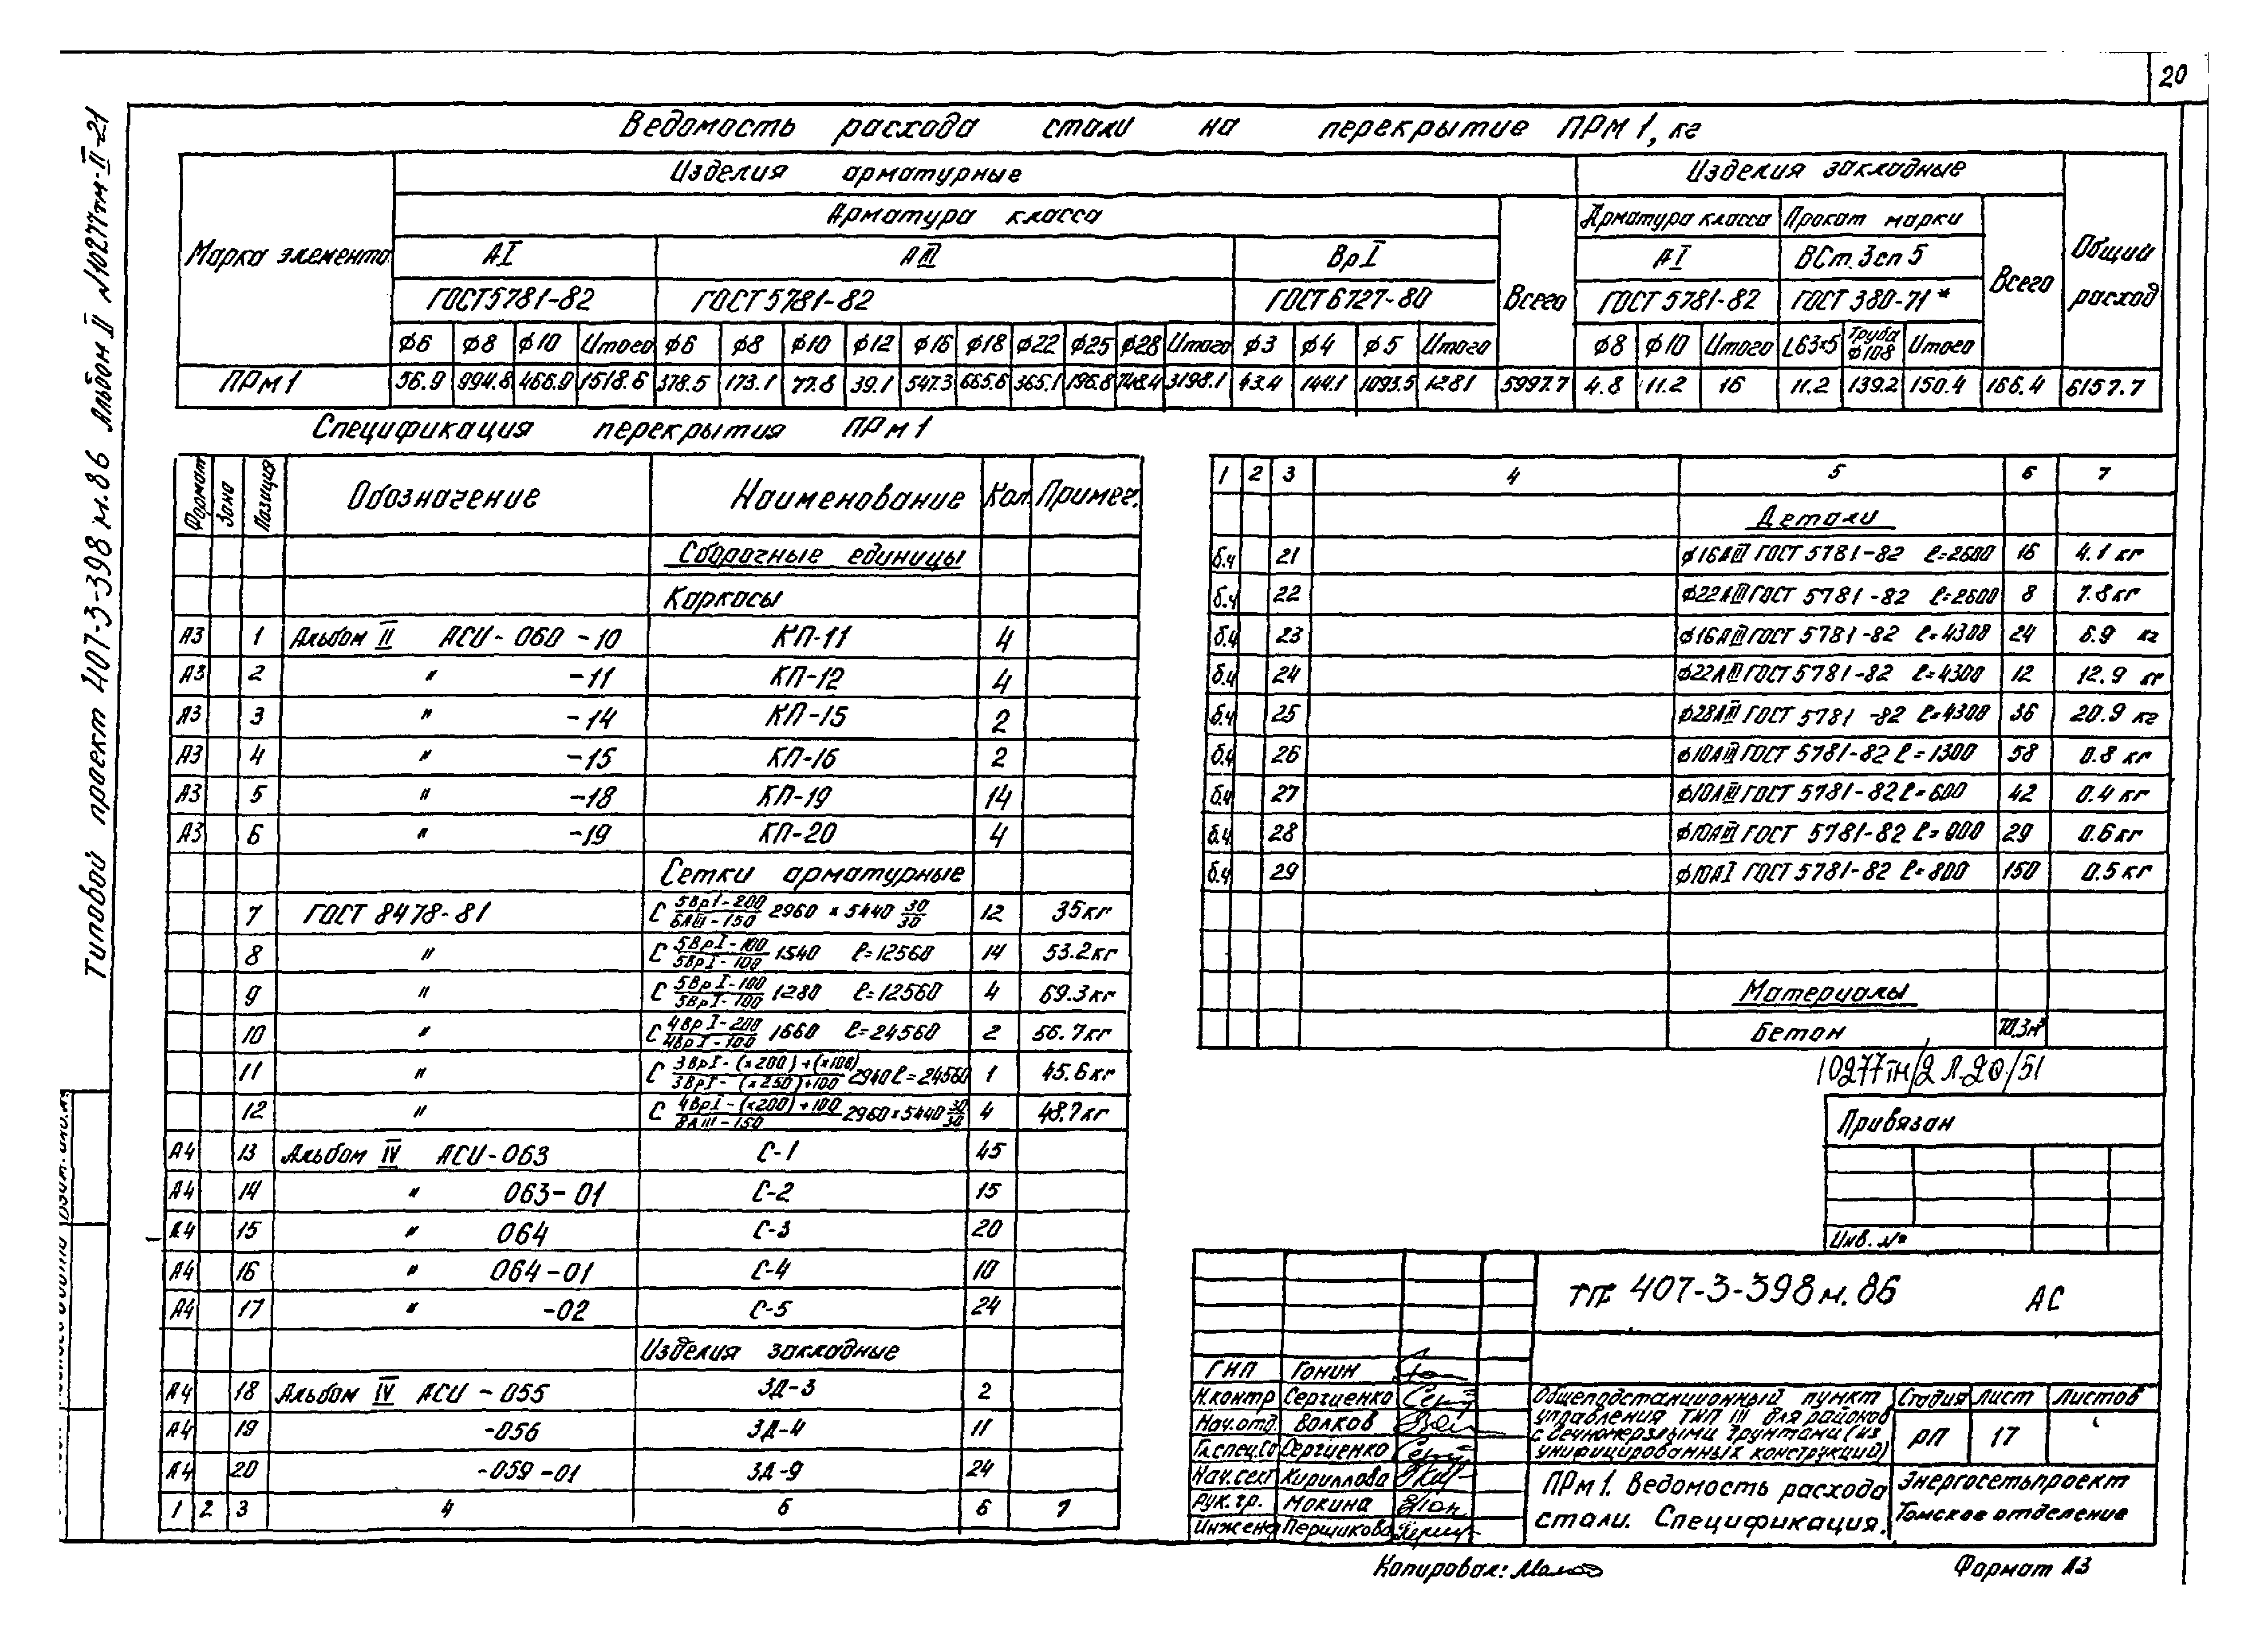 20
Типовой проект 407-3-398м.86 Альбом II №10277тм-II-21
Ведомость расхода стали на перекрытие ПРм1, кг
Марка элемента | Изделия арматурные | Изделия закладные | Общий расход
Арматура класса | Всего | Арматура класса | Прокат марки | Всего
АI | АIII | ВрI | АI | ВСт.3сп5
ГОСТ5781-82 | ГОСТ5781-82 | ГОСТ6727-80 | ГОСТ5781-82 | ГОСТ380-71*
ϕ6 | ϕ8 | ϕ10 | Итого | ϕ6 | ϕ8 | ϕ10 | ϕ12 | ϕ16 | ϕ18 | ϕ22 | ϕ25 | ϕ28 | Итого | ϕ3 | ϕ4 | ϕ5 | Итого | ϕ8 | ϕ10 | Итого | L63×5 | Труба ϕ108 | Итого
ПРм1 | 56.9 | 994.8 | 466.9 | 1518.6 | 378.5 | 173.1 | 77.8 | 39.1 | 547.3 | 665.6 | 365.1 | 196.8 | 748.4 | 3198.1 | 43.4 | 144.1 | 1093.5 | 1281 | 5997.7 | 4.8 | 11.2 | 16 | 11.2 | 139.2 | 150.4 | 166.4 | 6157.7
Спецификация перекрытия ПРм1
Формат | Зона | Позиция | Обозначение | Наименование | Кол. | Примеч.
Сборочные единицы
Каркасы
А3 | 1 | Альбом II АСИ-060-10 | КП-11 | 4
А3 | 2 | " -11 | КП-12 | 4
А3 | 3 | " -14 | КП-15 | 2
А3 | 4 | " -15 | КП-16 | 2
А3 | 5 | " -18 | КП-19 | 14
А3 | 6 | " -19 | КП-20 | 4
Сетки арматурные
7 | ГОСТ 8478-81 | С 5ВрI-200/6АIII-150 2960×5440 30/30 | 12 | 35кг
8 | " | С 5ВрI-100/5ВрI-100 1540 ℓ=12560 | 14 | 53.2кг
9 | " | С 5ВрI-100/5ВрI-100 1280 ℓ=12560 | 4 | 69.3кг
10 | " | С 4ВрI-200/4ВрI-100 1660 ℓ=24560 | 2 | 56.7кг
11 | " | С 3ВрI-(×200)+(×100)/3ВрI-(×250)+100 2940 ℓ=24560 | 1 | 45.6кг
12 | " | С 4ВрI-(×200)+100/8АIII-150 2960×5440 30/30 | 4 | 48.7кг
А4 | 13 | Альбом IV АСИ-063 | С-1 | 45
А4 | 14 | " 063-01 | С-2 | 15
А4 | 15 | " 064 | С-3 | 20
А4 | 16 | " 064-01 | С-4 | 10
А4 | 17 | " -02 | С-5 | 24
Изделия закладные
А4 | 18 | Альбом IV АСИ-055 | ЗД-3 | 2
А4 | 19 | -056 | ЗД-4 | 11
А4 | 20 | -059-01 | ЗД-9 | 24
1 | 2 | 3 | 4 | 5 | 6 | 7
1 | 2 | 3 | 4 | 5 | 6 | 7
Детали
б.ч | 21 | ϕ16АIII ГОСТ 5781-82 ℓ=2600 | 16 | 4.1 кг
б.ч | 22 | ϕ22АIII ГОСТ 5781-82 ℓ=2600 | 8 | 7.8кг
б.ч | 23 | ϕ16АIII ГОСТ 5781-82 ℓ=4300 | 24 | 6.9 кг
б.ч | 24 | ϕ22АIII ГОСТ 5781-82 ℓ=4300 | 12 | 12.9 кг
б.ч | 25 | ϕ28АIII ГОСТ 5781-82 ℓ=4300 | 36 | 20.9 кг
б.ч | 26 | ϕ10АIII ГОСТ 5781-82 ℓ=1300 | 58 | 0.8 кг
б.ч | 27 | ϕ10АIII ГОСТ 5781-82 ℓ=600 | 42 | 0.4 кг
б.ч | 28 | ϕ10АIII ГОСТ 5781-82 ℓ=900 | 29 | 0.6кг
б.ч | 29 | ϕ10АI ГОСТ 5781-82 ℓ=800 | 150 | 0.5кг
Материалы
Бетон | 70.3м³
10277тм/2 л.20/51
Привязан
Инв.№
ТП 407-3-398м.86 АС
ГИП Гонин
Н.контр Сергиенко
Нач.отд. Волков
Гл.спец.СО Сергиенко
Нач.сект Кириллова
Рук.гр. Мокина
Инженер Першикова
Общеподстанционный пункт
управления ТИП III для районов
с вечномерзлыми грунтами (из
унифицированных конструкций)
Стадия | Лист | Листов
РП | 17
ПРм1. Ведомость расхода
стали. Спецификация.
Энергосетьпроект
Томское отделение
Копировал:
Формат А3